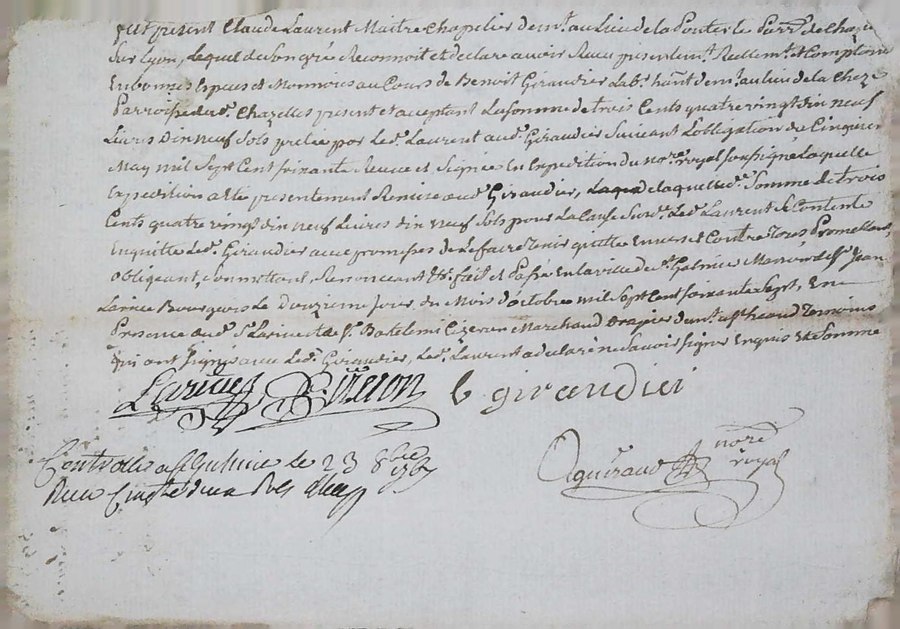 fut present Claude Laurent Maitre Chapelier demt. au Lieu de la Ponterle Parre. de Chaze
Sur Lyon, Lequel de Son gré Reconnoit et declare avoir Recu presentemt. Reellemt. et Comptant
En bonnes Especes et Monnoies au Cours de Benoit Giraudier Labr. hant. demt. au lieu de la Cheze
Parroisse dud. Chazelles present et acceptant La Somme de trois Cents quatre vingt dix neuf
Livres Dix neuf Sols pretée par Led. Laurent aud. Giraudier Suivant Lobligation du Cinquieme
May mil Sept Cent soixante Recue et Signée En Expedition du nore. royal soussigné Laquelle
Expedition a été presentement Remise aud. Giraudier, de laquelle de. Somme de trois
Cents quatre vingt dix neuf Livres dix neuf Sols pour La Cause Susd. Led. Laurent Se Contente
En quitte Led. Giraudier avec promesse de Le faire tenir quitte Envers et Contre tous Promettant,
Obligeant, Soumettant, Renonceant &c. fait et Passé En la ville de St. Galmier Maison de Sr. Jean
Larive Bourgeois Le Douzieme Jour du Mois d'octobre mil Sept Cent soixante Sept, En
Presence dud. Sr. Larive et de Sr. Batelemi Cizeron Marchand Drapier demt. Temoins
qui ont Signé avec Led. Giraudier, Led. Laurent a declaré ne Savoir signer Enquis et Sommé
Larive B Cizeron b giraudiei
Controllé a St Galmier le 23 8bre 1767
Recu
Aguiraud nore royal